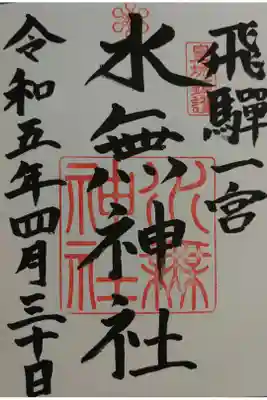 飛騨一宮
水無神社
令和五年四月三十日
水無神社